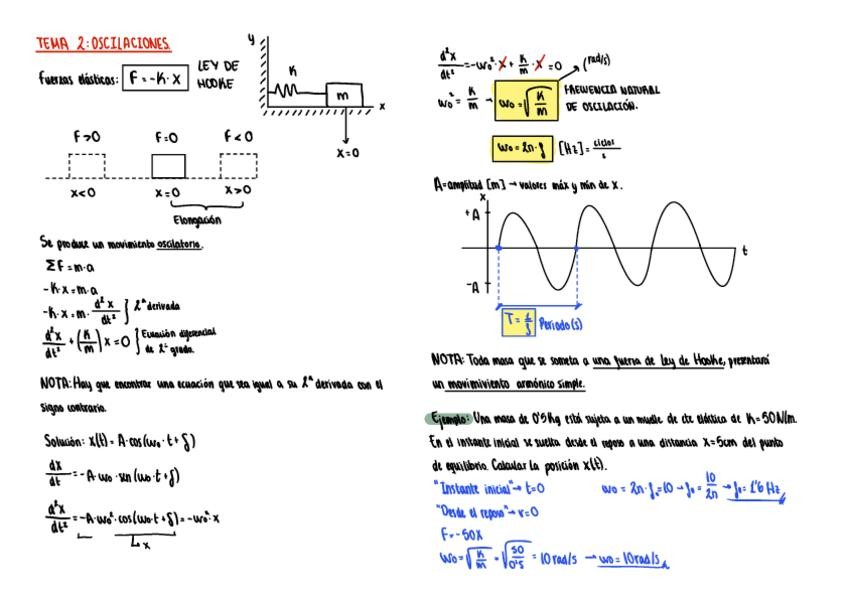 TEMA 2: OSCILACIONES.
Fuerzas elásticas: F = -K · X LEY DE HOOKE
y
K
m
x
x=0
F>0 F=0 F<0
x<0 x=0 x>0
Elongación
Se produce un movimiento oscilatorio.
ΣF = m·a
-K·x = m·a
-K·x = m· d²x/dt² } 2ª derivada
d²x/dt² + (K/m) x = 0 } Ecuación diferencial de 2º grado.
NOTA: Hay que encontrar una ecuación que sea igual a su 2ª derivada con el
signo contrario.
Solución: x(t) = A·cos(ω₀·t+δ)
dx/dt = -A·ω₀·sen(ω₀·t+δ)
d²x/dt² = -A·ω₀²·cos(ω₀·t+δ) = -ω₀²·x
x
d²x/dt² = -ω₀²·x + K/m·x = 0 (rad/s)
ω₀² = K/m → ω₀ = √K/m FRECUENCIA NATURAL DE OSCILACIÓN.
ω₀ = 2π·f [Hz] = ciclos/s
A = amplitud [m] → valores máx y mín de x.
x
+A
t
-A
T = 1/f Periodo (s)
NOTA: Toda masa que se someta a una fuerza de Ley de Hooke, presentará
un movimiviento armónico simple.
Ejemplo: Una masa de 0'5 Kg está sujeta a un muelle de cte elástica de K = 50 N/m.
En el instante inicial se suelta desde el reposo a una distancia x = 5cm del punto
de equilibrio. Calcular la posición x(t).
"Instante inicial" → t=0 ω₀ = 2π·f₀ = 10 → f₀ = 10/2π → f₀ = 1'6 Hz
"Desde el reposo" → v=0
F = -50X
ω₀ = √K/m = √50/0'5 = 10 rad/s → ω₀ = 10 rad/s